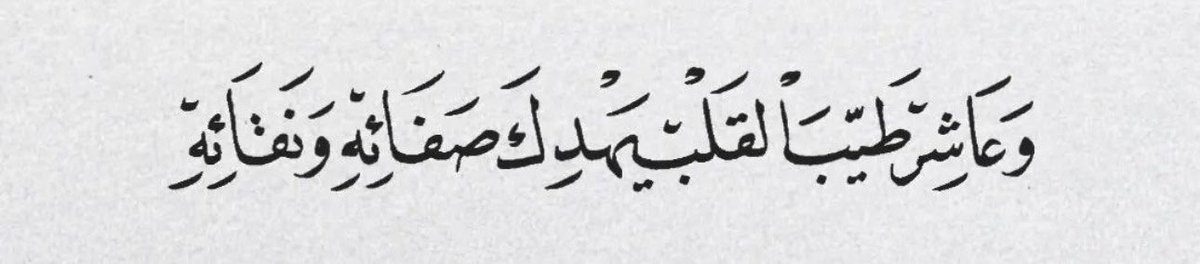 وَعَاشِرْ طَيِّبَ الْقَلْبْ يَهْدِكَ صَفَائِهِ وَنَقَائِهِ